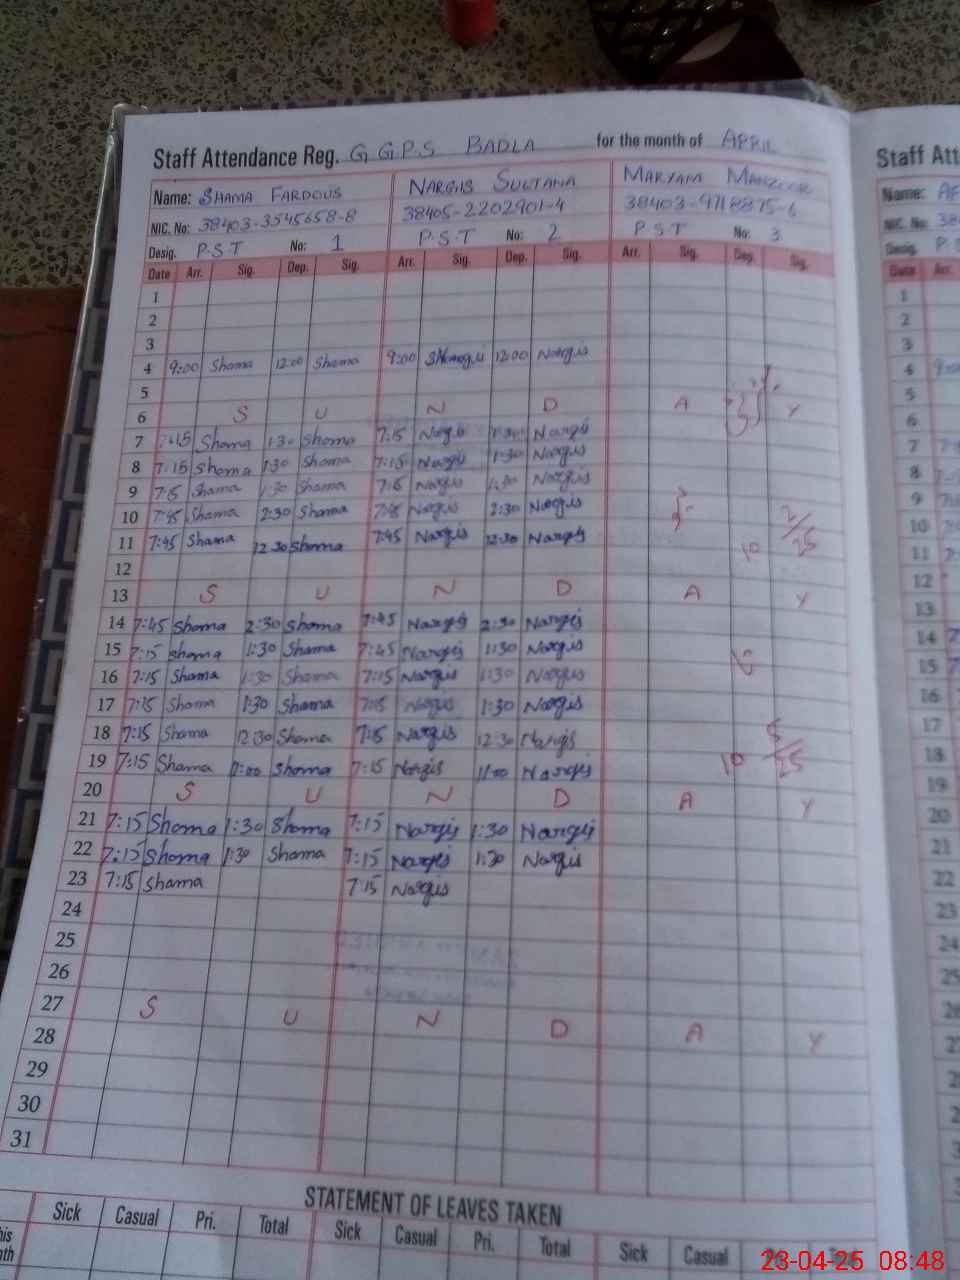 Staff Attendance Reg. G G.P.S BADLA for the month of APRIL
Staff Att
Name: SHAMA FARDOUS NARGIS SULTANA MARYAM MANZOOR
Name:
NIC. No: 38403-3545658-8 38405-2202901-4 38403-9718875-6
NIC. No: 38
Desig. P.S.T No: 1 P.S.T No: 2 P.S.T No: 3
Desig. P.
Date Arr. Sig. Dep. Sig. Arr. Sig. Dep. Sig. Arr. Sig. Dep. Sig.
Date Arr.
1
2
3
4 9:00 Shama 12:00 Shama 9:00 12:00 Nargis
5
6 S U N D A Y
7 7:15 Shama 1:30 Shama 7:15 Nargis 1:30 Nargis
8 7:15 Shama 1:30 Shama 7:15 Nargis 1:30 Nargis
9 Shama 1:30 Shama Nargis 1:30 Nargis
10 7:45 Shama 2:30 Shama 7:45 Nargis 2:30 Nargis
11 7:45 Shama 12:30 Shama 7:45 Nargis 12:30 Nargis 10 2/25
12
13 S U N D A Y
14 7:45 Shama 2:30 Shama 7:45 Nargis 2:30 Nargis
15 7:15 Shama 1:30 Shama 7:45 Nargis 1:30 Nargis
16 7:15 Shama 1:30 Shama 7:15 Nargis 1:30 Nargis
17 7:15 Shama 1:30 Shama 7:15 Nargis 1:30 Nargis
18 7:15 Shama 12:30 Shama 7:15 Nargis 12:30 Nargis
19 7:15 Shama Shama 7:15 Nargis 11:00 Nargis 10 5/25
20 S U N D A Y
21 7:15 Shama 1:30 Shama 7:15 Nargis 1:30 Nargis
22 7:15 Shama 1:30 Shama 7:15 Nargis 1:30 Nargis
23 7:15 Shama 7:15 Nargis
24
25
26
27 S U N D A Y
28
29
30
31
STATEMENT OF LEAVES TAKEN
Sick Casual Pri. Total Sick Casual Pri. Total Sick Casual
23-04-25 08:48